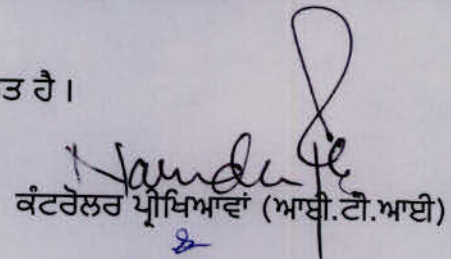 ਤ ਹੈ।
ਕੰਟਰੋਲਰ ਪ੍ਰੀਖਿਆਵਾਂ (ਆਈ.ਟੀ.ਆਈ)